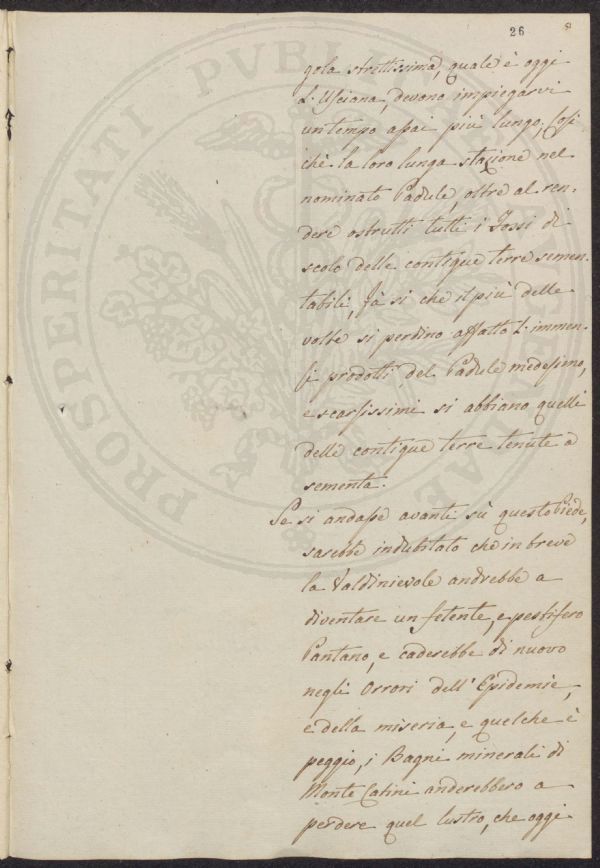 26
gola strettissima, quale è oggi
L'Usciana, devono impiegarvi
un tempo assai più lungo; Cosi
chè la loro lunga stazione nel
nominato Padule, oltre al ren-
dere ostrutti tutti i Fossi di
scolo delle contigue terre semen-
tabili, fà si che il più delle
volte si perdino affatto L'immen-
si prodotti del Padule medesimo,
e scarsissimi si abbiano quelli
delle contigue terre tenute a
sementa.
Se si andasse avanti sù questo Piede,
sarebbe indubitato che in breve
la Valdinievole andrebbe a
diventare un fetente, e pestifero
Pantano, e caderebbe di nuovo
negli Orrori dell'Epidemie,
e della miseria, e quelche è
peggio, i Bagni minerali di
Monte Catini anderebbero a
perdere quel lustro, che oggi
PROSPERITATI PVBLICAE